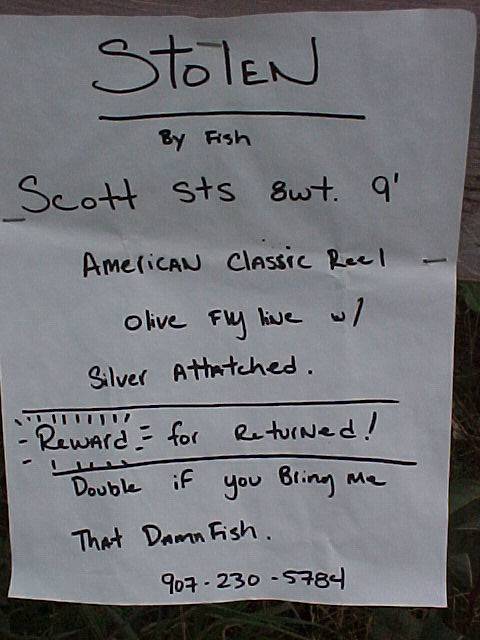 StolEN
By Fish
Scott STS 8wt. 9'
AMERICAN Classic Reel
Olive Fly line w/
Silver AttAtched.
Reward for Returned!
Double if you Bring Me
That Damn Fish.
907-230-5784